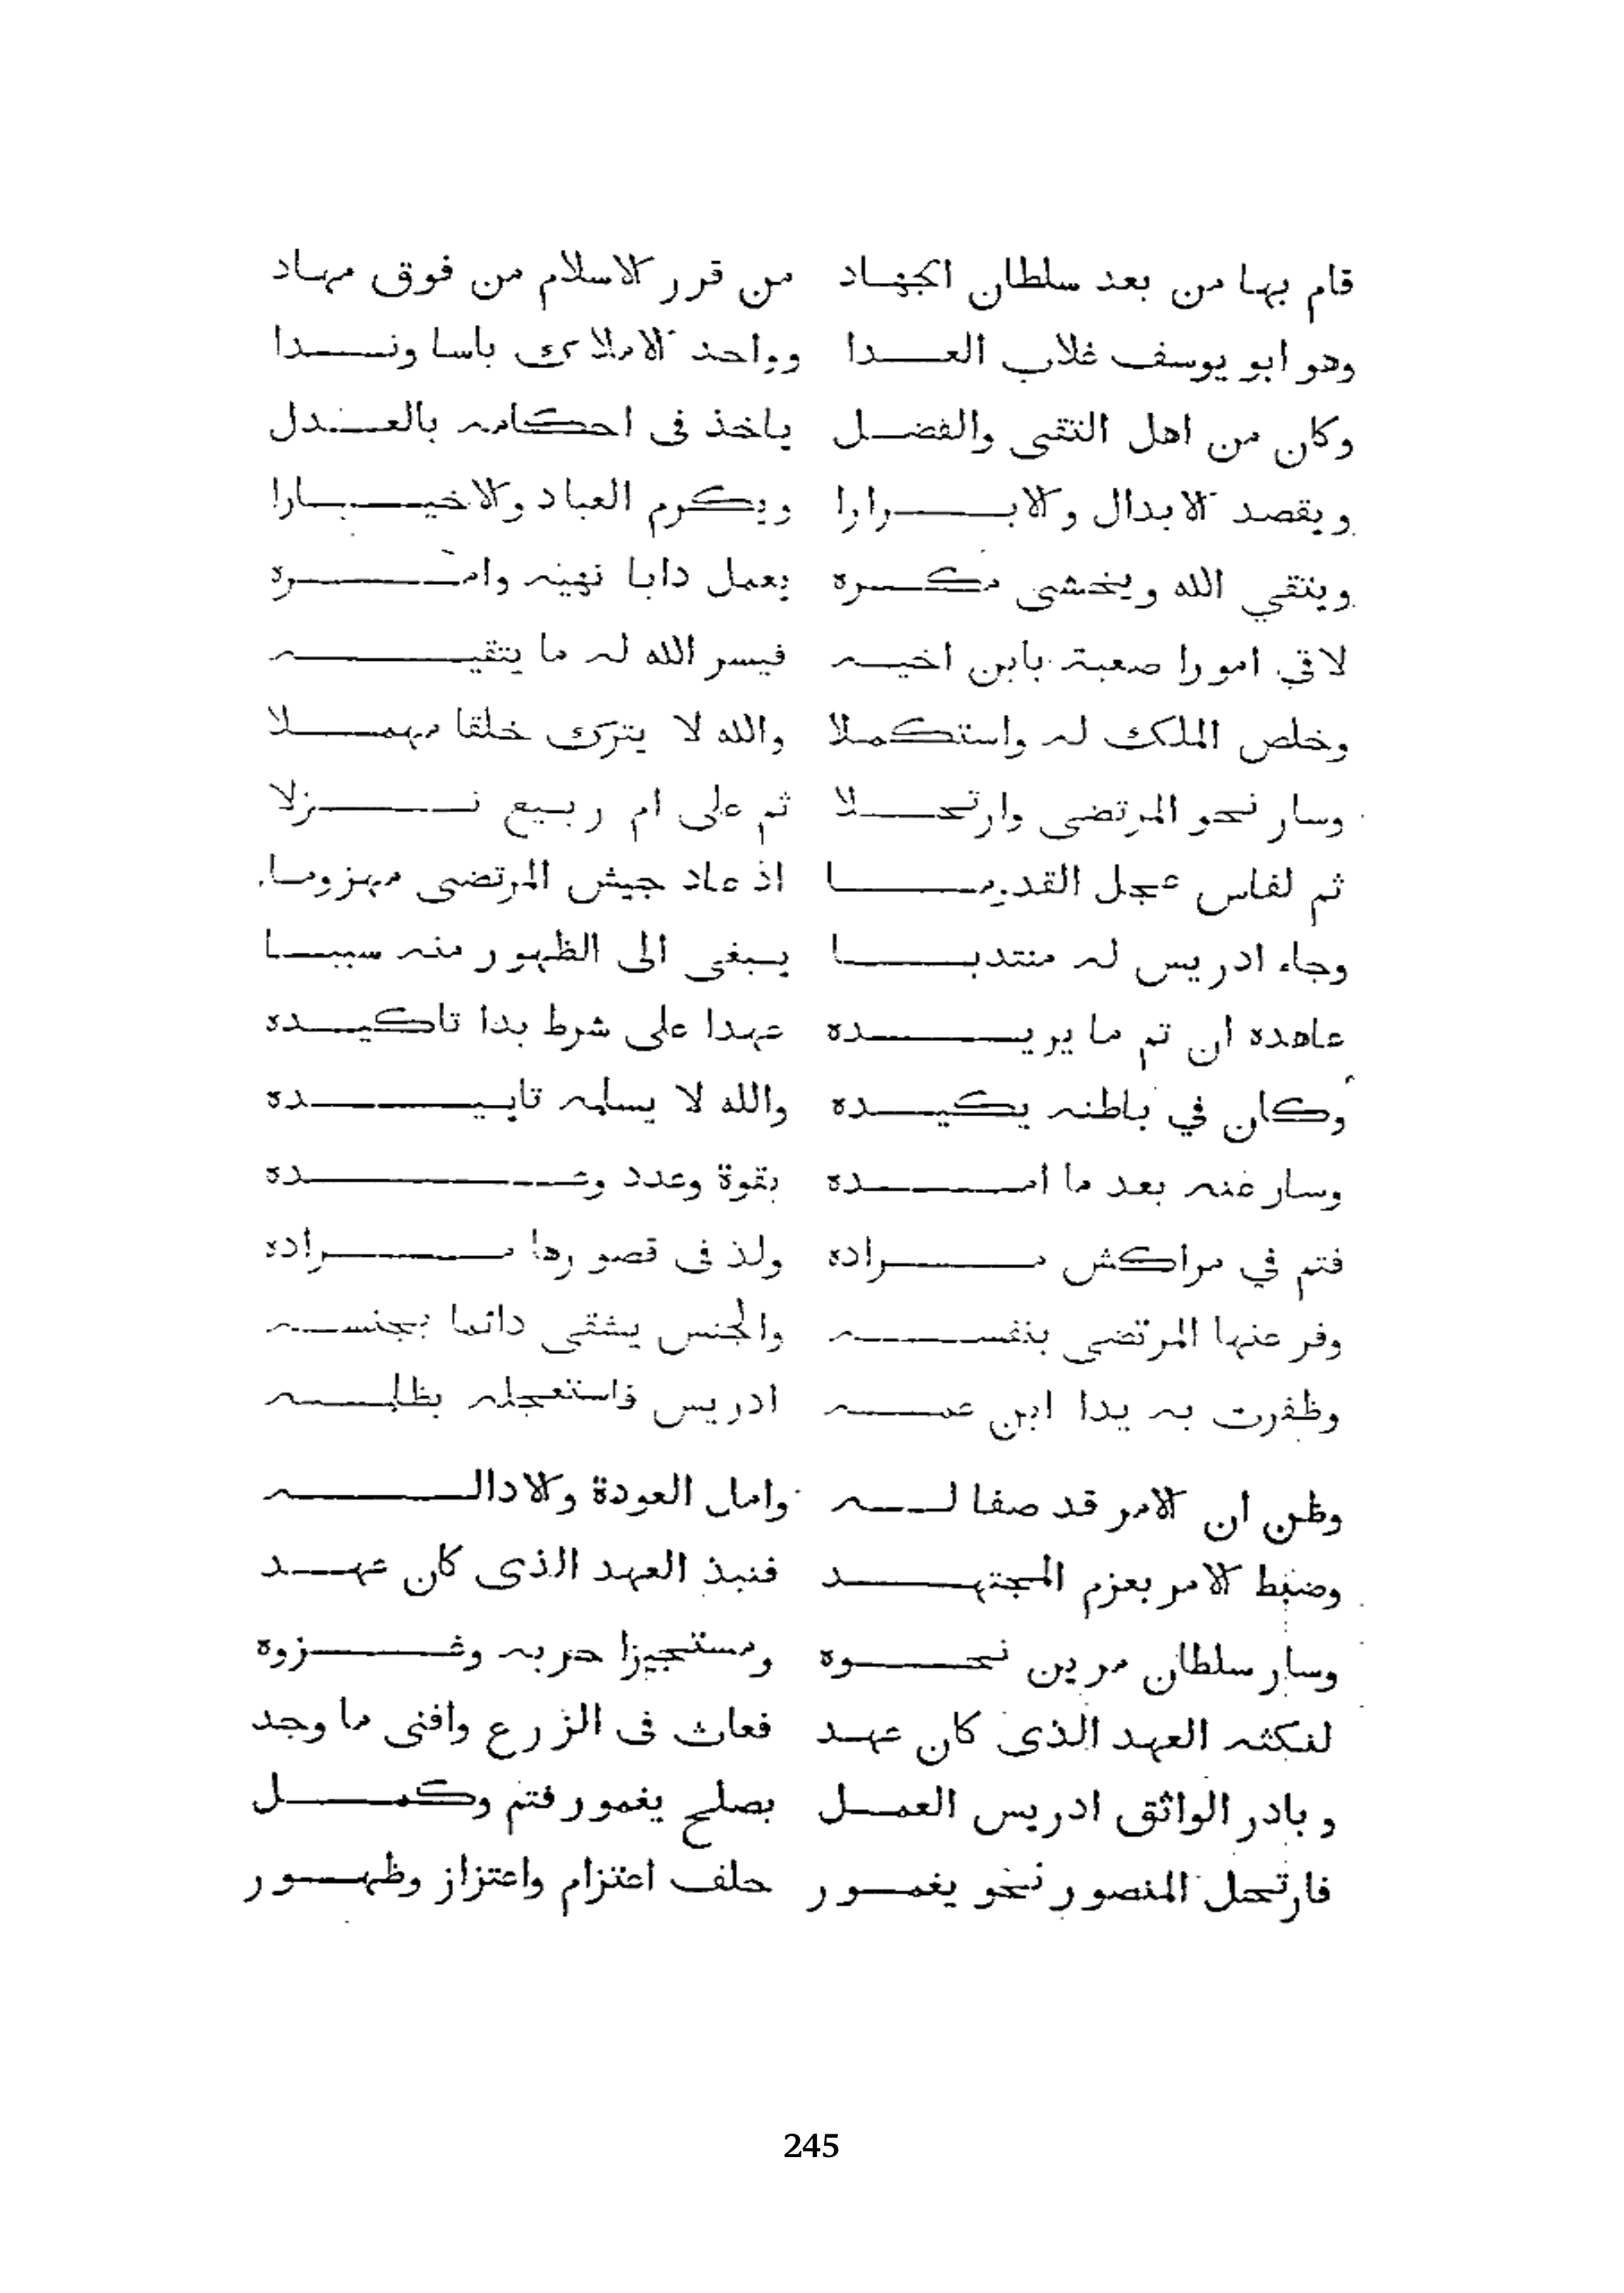 قام بها من بعد سلطان الجهاد من قرر الاسلام من فوق مهاد
وهو ابو يوسف غلاب العدا وواحد الاملاك باسا وندا
وكان من اهل التقى والفضل ياخذ فى احكامه بالعدل
ويقصد الابدال والابرارا ويكرم العباد والاخيارا
ويتقي الله ويخشى مكره يعمل دابا نهيه وامره
لاقي امورا صعبة بابن اخيه فيسر الله له ما يتقيه
وخلص الملك له واستكملا والله لا يترك خلقا مهملا
وسار نحو المرتضى وارتحلا ثم على ام ربيع نزلا
ثم لفاس عجل القديما اذ عاد جيش المرتضى مهزوما
وجاء ادريس له منتدبا يبغى الى الظهور منه سببا
عاهده ان تم ما يريده عهدا على شرط بدا تاكيده
وكان في باطنه يكيده والله لا يسلمه تاييده
وسار عنه بعد ما امده بقوة وعدد وعده
فتم في مراكش مراده ولذ فى قصورها مراده
وفر عنها المرتضى بنفسه والجنس يشقى دائما بجنسه
وظفرت به يدا ابن عمه ادريس فاستعجله بظلمه
وظن ان الامر قد صفا له وامل العودة والاداله
وضبط الامر بعزم المجتهد فنبذ العهد الذى كان عهد
وسار سلطان مرين نحوه ومستجيزا حربه وغزوه
لنكثه العهد الذى كان عهد فعاث فى الزرع وافنى ما وجد
وبادر الواثق ادريس العمل بصلح يغمور فتم وكمل
فارتحل المنصور نحو يغمور حلف اعتزام واعتزاز وظهور
245